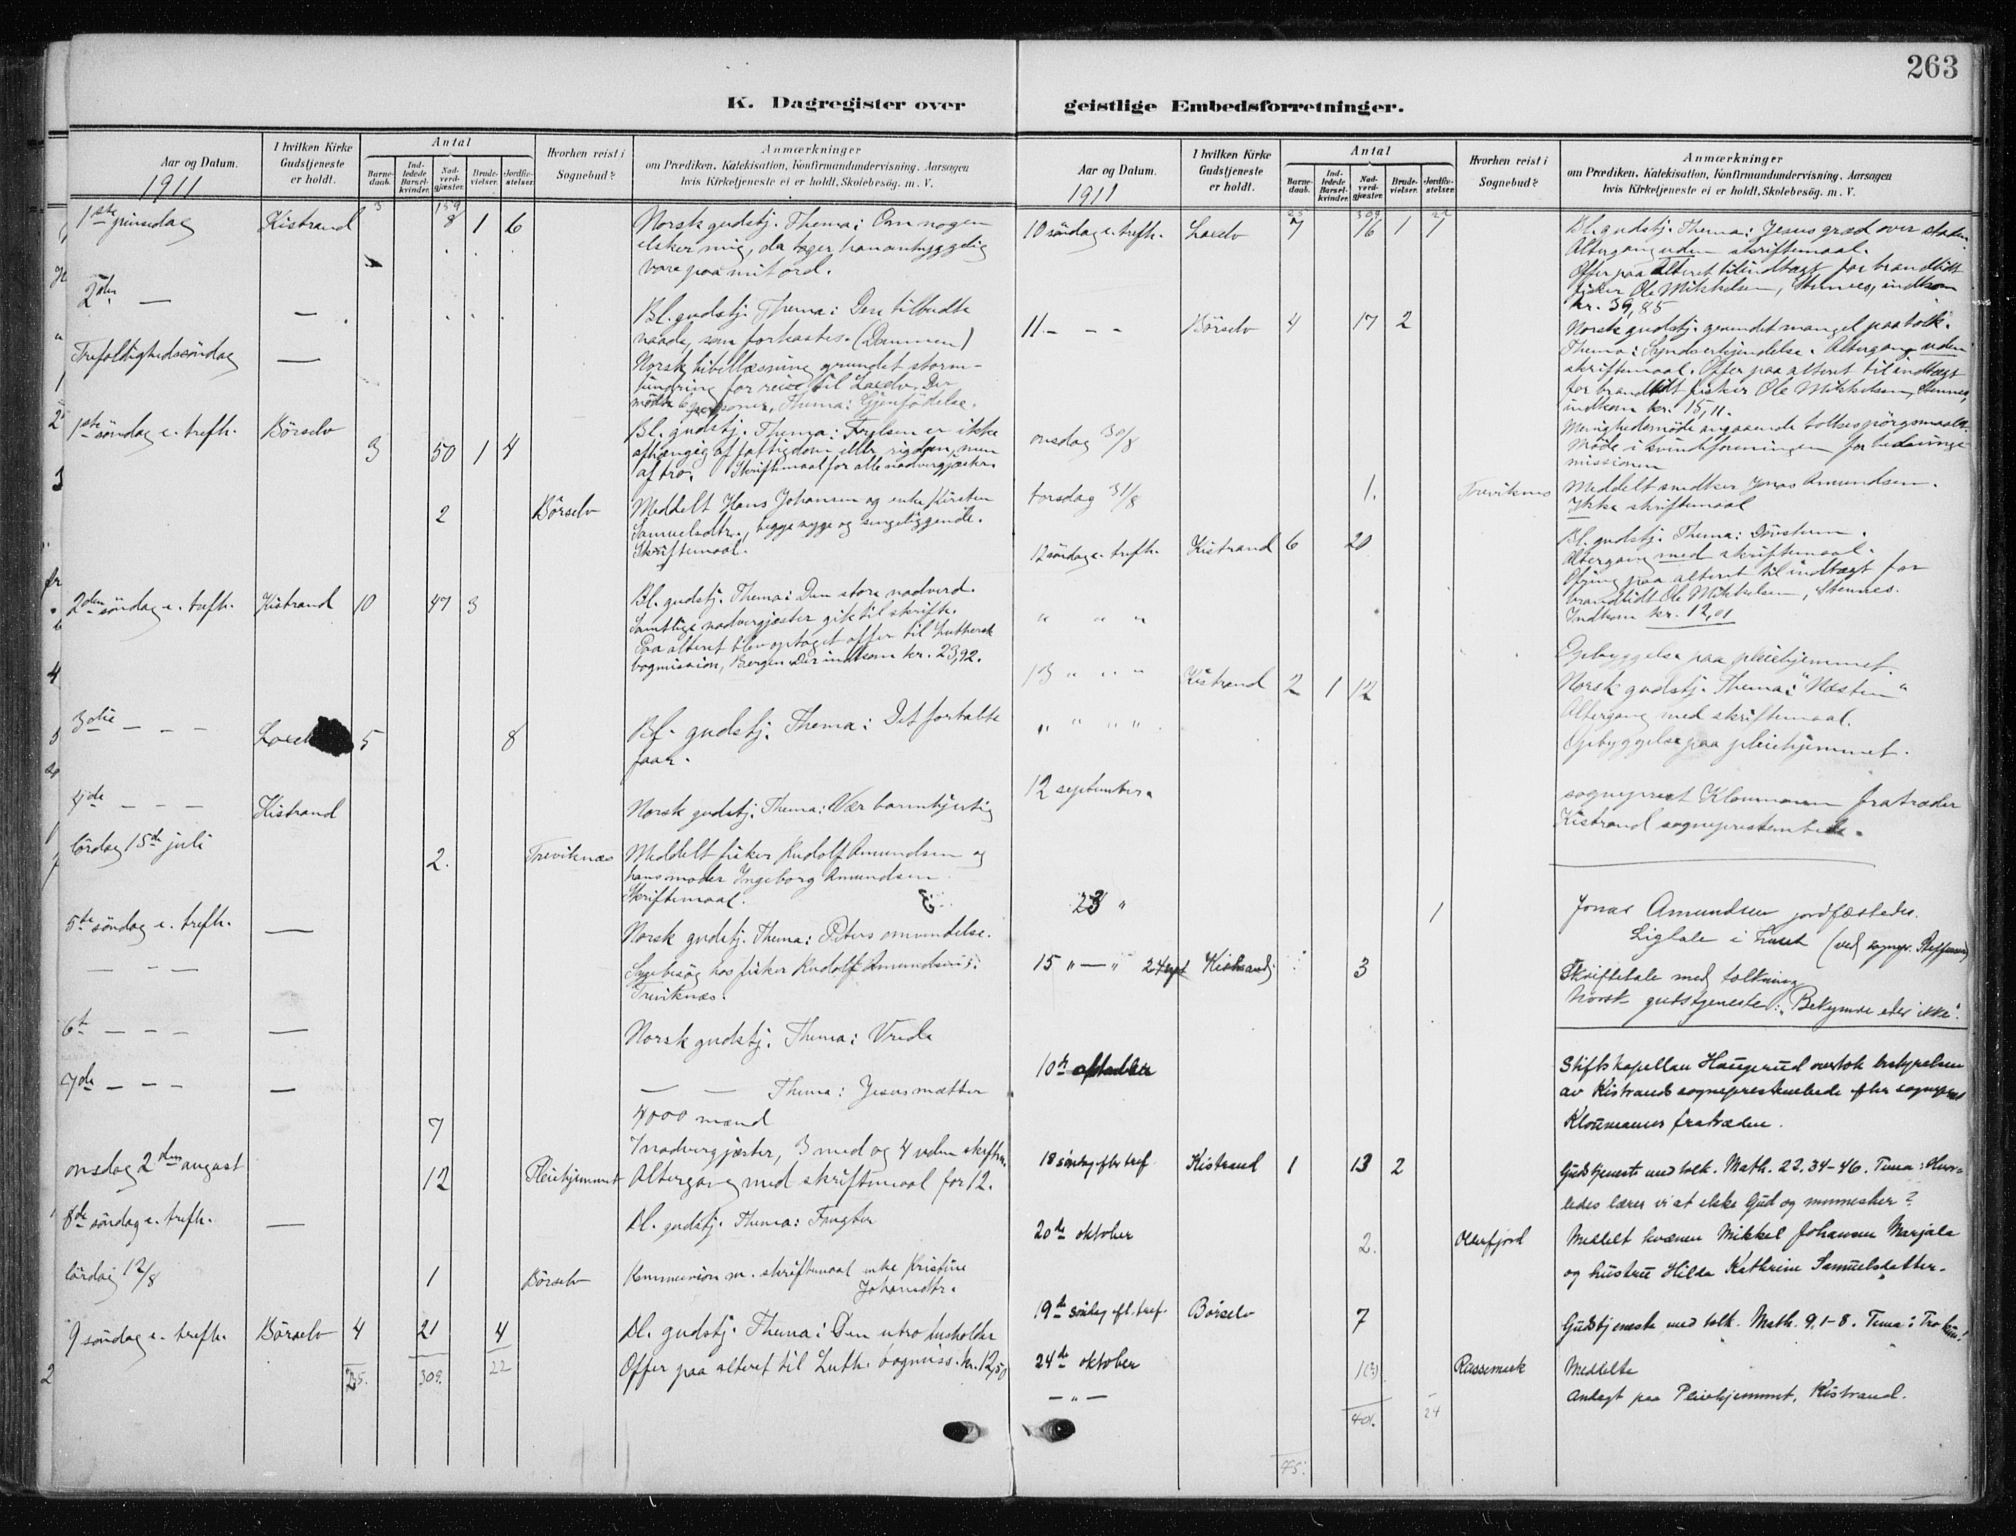 263
K. Dagregister over geistlige Embedsforretninger.
Aar og Datum.
1911
I hvilken Kirke
Gudstjeneste
er holdt.
Antal
Barne-
daab.
Ind-
ledede
Barsel-
kvinder.
Nad-
verd-
gjæster.
Brude-
vielser.
Jordfæ-
stelser.
Hvorhen reist i
Sognebud?
Anmærkninger
om Prædiken, Katekisation, Konfirmandundervisning, Aarsagen
hvis Kirketjeneste ei er holdt, Skolebesøg. m. V.
3 159
1ste pinsedag Kistrand 8 1 6 Norsk gudstj. Thema: Om nogen
elsker mig, da tager han
vare paa mit ord.
2den — — Bl. gudstj. Thema: Den tilbudte
naade, som forkastes. (Lammen)
Trefoldighedssøndag — Norsk bibellæsning grundet storm-
hindring for reise til Laxelv. Der
mødte 6 personer, Thema: Gjenfødelse.
1ste søndag e. trefh. Børselv 3 50 1 4 Bl. gudstj. Thema: Frelsen er ikke
afhængig af fattigdom eller rigdom, men
af tro. Skriftemaal for alle nadvergjæster.
2 Børselv Meddelt Hans Johansen og enke Kirsten
Samuelsdtr., begge syge og sengeliggende.
Skriftemaal.
2den søndag e. trefh. Kistrand 10 47 3 Bl. gudstj. Thema: Den store nadverd.
Samtlige nadvergjæster gik til skrifte.
Paa alteret blev optaget offer til Luthersk
bogmission, Bergen. Der indkom kr. 23,92.
3die — — — 5 8 Bl. gudstj. Thema: Det fortabte
faar.
4de — — — Kistrand Norsk gudstj. Thema: Vær barmhjertig
lørdag 15de juli 2. Treviknæs Meddelt fisker Rudolf Amundsen og
hans moder Ingeborg Amundsen.
Skriftemaal.
5te søndag e. trefh. — Norsk gudstj. Thema: Peters omvendelse.
— — — Sygebesøg hos fisker Rudolf Amundsen i
Treviknæs.
6te — — — — Norsk gudstj. Thema: Vrede
7de — — — — — — Thema: Jesus mætter
4000 mænd
7 7 nadvergjæster, 3 med og 4 uden skriftm.
onsdag 2den august 12 Pleiehjemmet Altergang med skriftemaal for 12.
8de søndag e. trefh. — Bl. gudstj. Thema: Frugter
lørdag 12/8 1 Børselv Kommunion m. skriftemaal enke Kristine
Johansdtr.
9 søndag e. trefh. Børselv 4 21 4 Bl. gudstj. Thema: Den utro husholder
Offer paa alteret til Luth. bogmiss. kr. 12,50
25. 309. 22
Aar og Datum.
1911
I hvilken Kirke
Gudstjeneste
er holdt.
Antal
Barne-
daab.
Ind-
ledede
Barsel-
kvinder.
Nad-
verd-
gjæster.
Brude-
vielser.
Jordfæ-
stelser.
Hvorhen reist i
Sognebud?
Anmærkninger
om Prædiken, Katekisation, Konfirmandundervisning, Aarsagen
hvis Kirketjeneste ei er holdt, Skolebesøg. m. V.
25 309 22
10 søndag e. trefh. Laxelv 7 16 1 1 Bl. gudstj. Thema: Jesus græd over staden.
Altergang uden skriftemaal.
Offer paa alteret til indtægt for brandlidt
fisker Ole Mikkelsen, Stennes, indkom
kr. 39,85
11. — — — Børselv 4 17 2 Norsk gudstj. grundet mangel paa tolk.
Thema: Syndserkjendelse. Altergang uden
skriftemaal. Offer paa alteret til indtægt
for brandlidt fisker Ole Mikkelsen, Stennes,
indkom kr. 15,11.
onsdag 30/8 Menighedsmøde angaaende tolkespørgsmaalet.
Møde i kvindeforeningen for hedninge-
missionen
torsdag 31/8 1. Treviknes Meddelt snedker Jonas Amundsen.
Ikke skriftemaal
12 søndag e. trefh. Kistrand 6 20 Bl. gudstj. Thema: Døvstum.
Altergang med skriftemaal.
Ofring paa alteret til indtægt for
brandlidt Ole Mikkelsen, Stennes.
Indkom kr. 12,01
" " " Opbyggelse paa pleiehjemmet.
13 " " " Kistrand 2 1 12 Norsk gudstj. Thema: "Næsten"
Altergang med skriftemaal.
" " " " Opbyggelse paa pleiehjemmet.
12 september. sogneprest Kloumann fratræder
Kistrand sogneprestembede.
23 " 1 Jonas Amundsen jordfæstedes.
Ligtale i huset (ved sognepr. Steffensen)
15 " — " 24 sept Kistrand 3 Skriftetale med tolkning
Norsk gudstjeneste: "Bekymre eder ikke".
10de Stiftskapellan Haugerud overtok bestyrelsen
av Kistrands sogneprestembede efter sogneprest
Kloumanns fratræden.
18 søndag efter tref. Kistrand 1 13 2 Gudstjeneste med tolk. Math. 22.34-46. Tema: Hvor-
ledes lærer vi at elske Gud og mennesker?
20de oktober 2. Olderfjord Meddelt kvænen Mikkel Johansen Marjala
og hustru Hilda Kathrine Samuelsdatter.
19de søndag ef. tref. Børselv 7 Gudstjeneste med tolk. Math. 9.1-8. Tema: Tro kun!
24de oktober 1 Meddelte
— " — Andagt paa Pleiehjemmet, Kistrand.
401. 24
45.